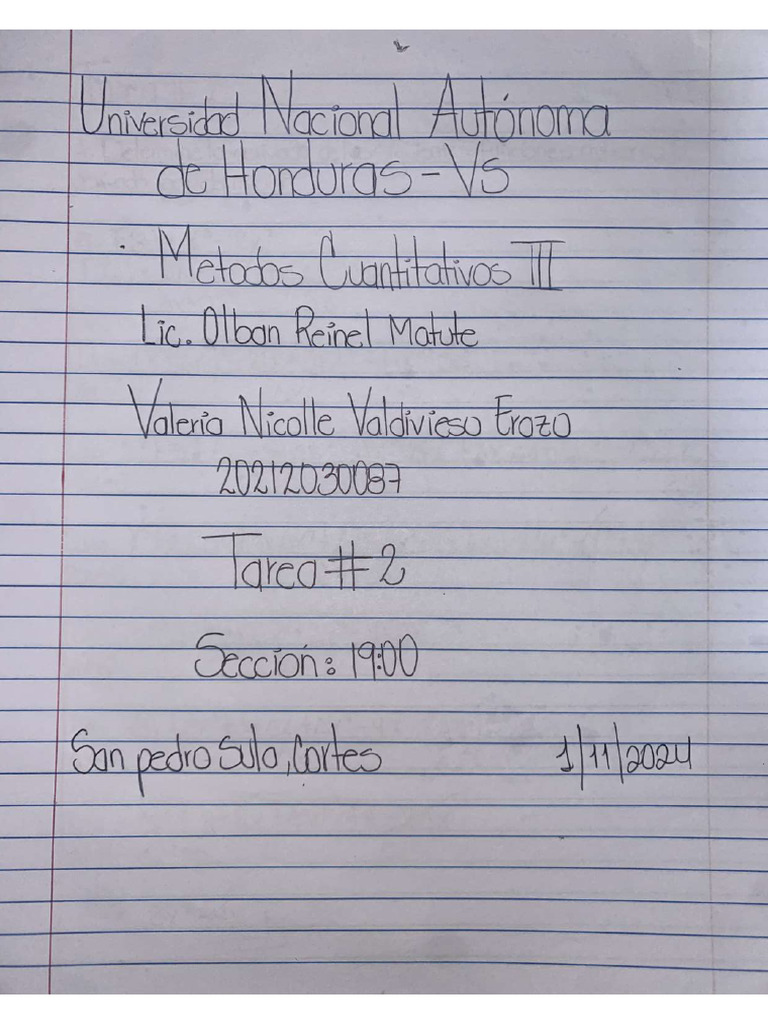 Universidad Nacional Autónoma
de Honduras - Vs
Metodos Cuantitativos III
Lic. Olban Reinel Matute
Valeria Nicolle Valdivieso Erazo
20212030087
Tarea # 2
Sección: 19:00
San pedro Sula, Cortes 1/11/2024